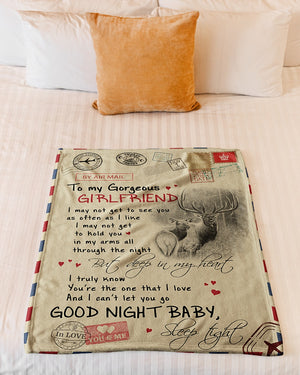 BY AIR MAIL
To my Gorgeous
GIRLFRIEND
I may not get to see you
as often as I like
I may not get
to hold you
in my arms all
through the night
But deep in my heart
I truly know
You're the one that I love
And I can't let you go
GOOD NIGHT BABY,
Sleep tight
In LOVE
YOU & ME